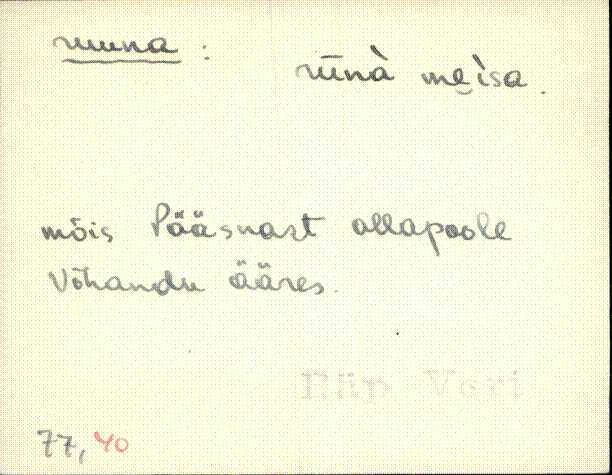 ruuna :
rūnà mei̯sa.
mõis Pääsnast allapoole
Võhandu ääres.
Räp Veri
77, 40